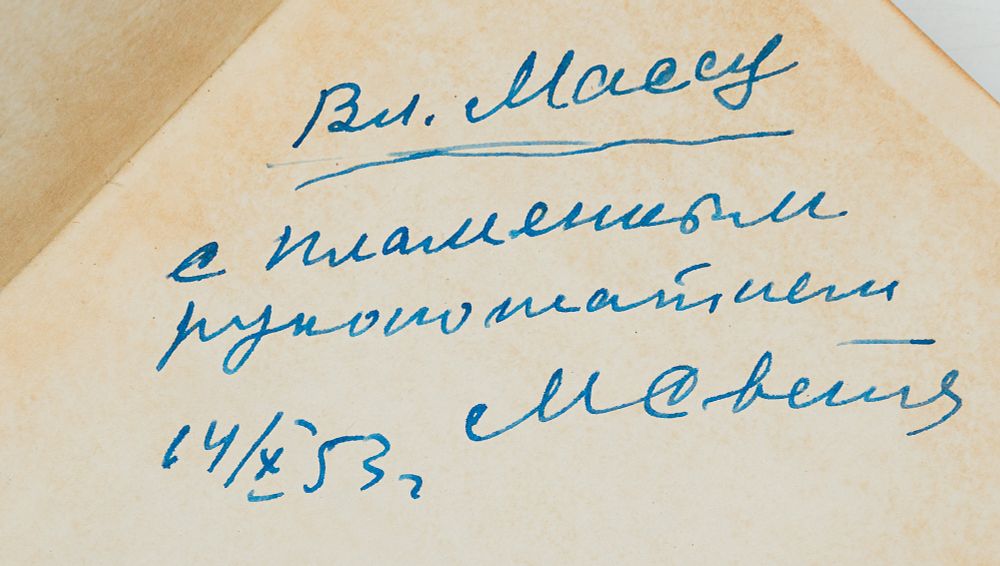 Вл. Массу
с пламенным
рукопожатием
М Светл
14/X 53 г